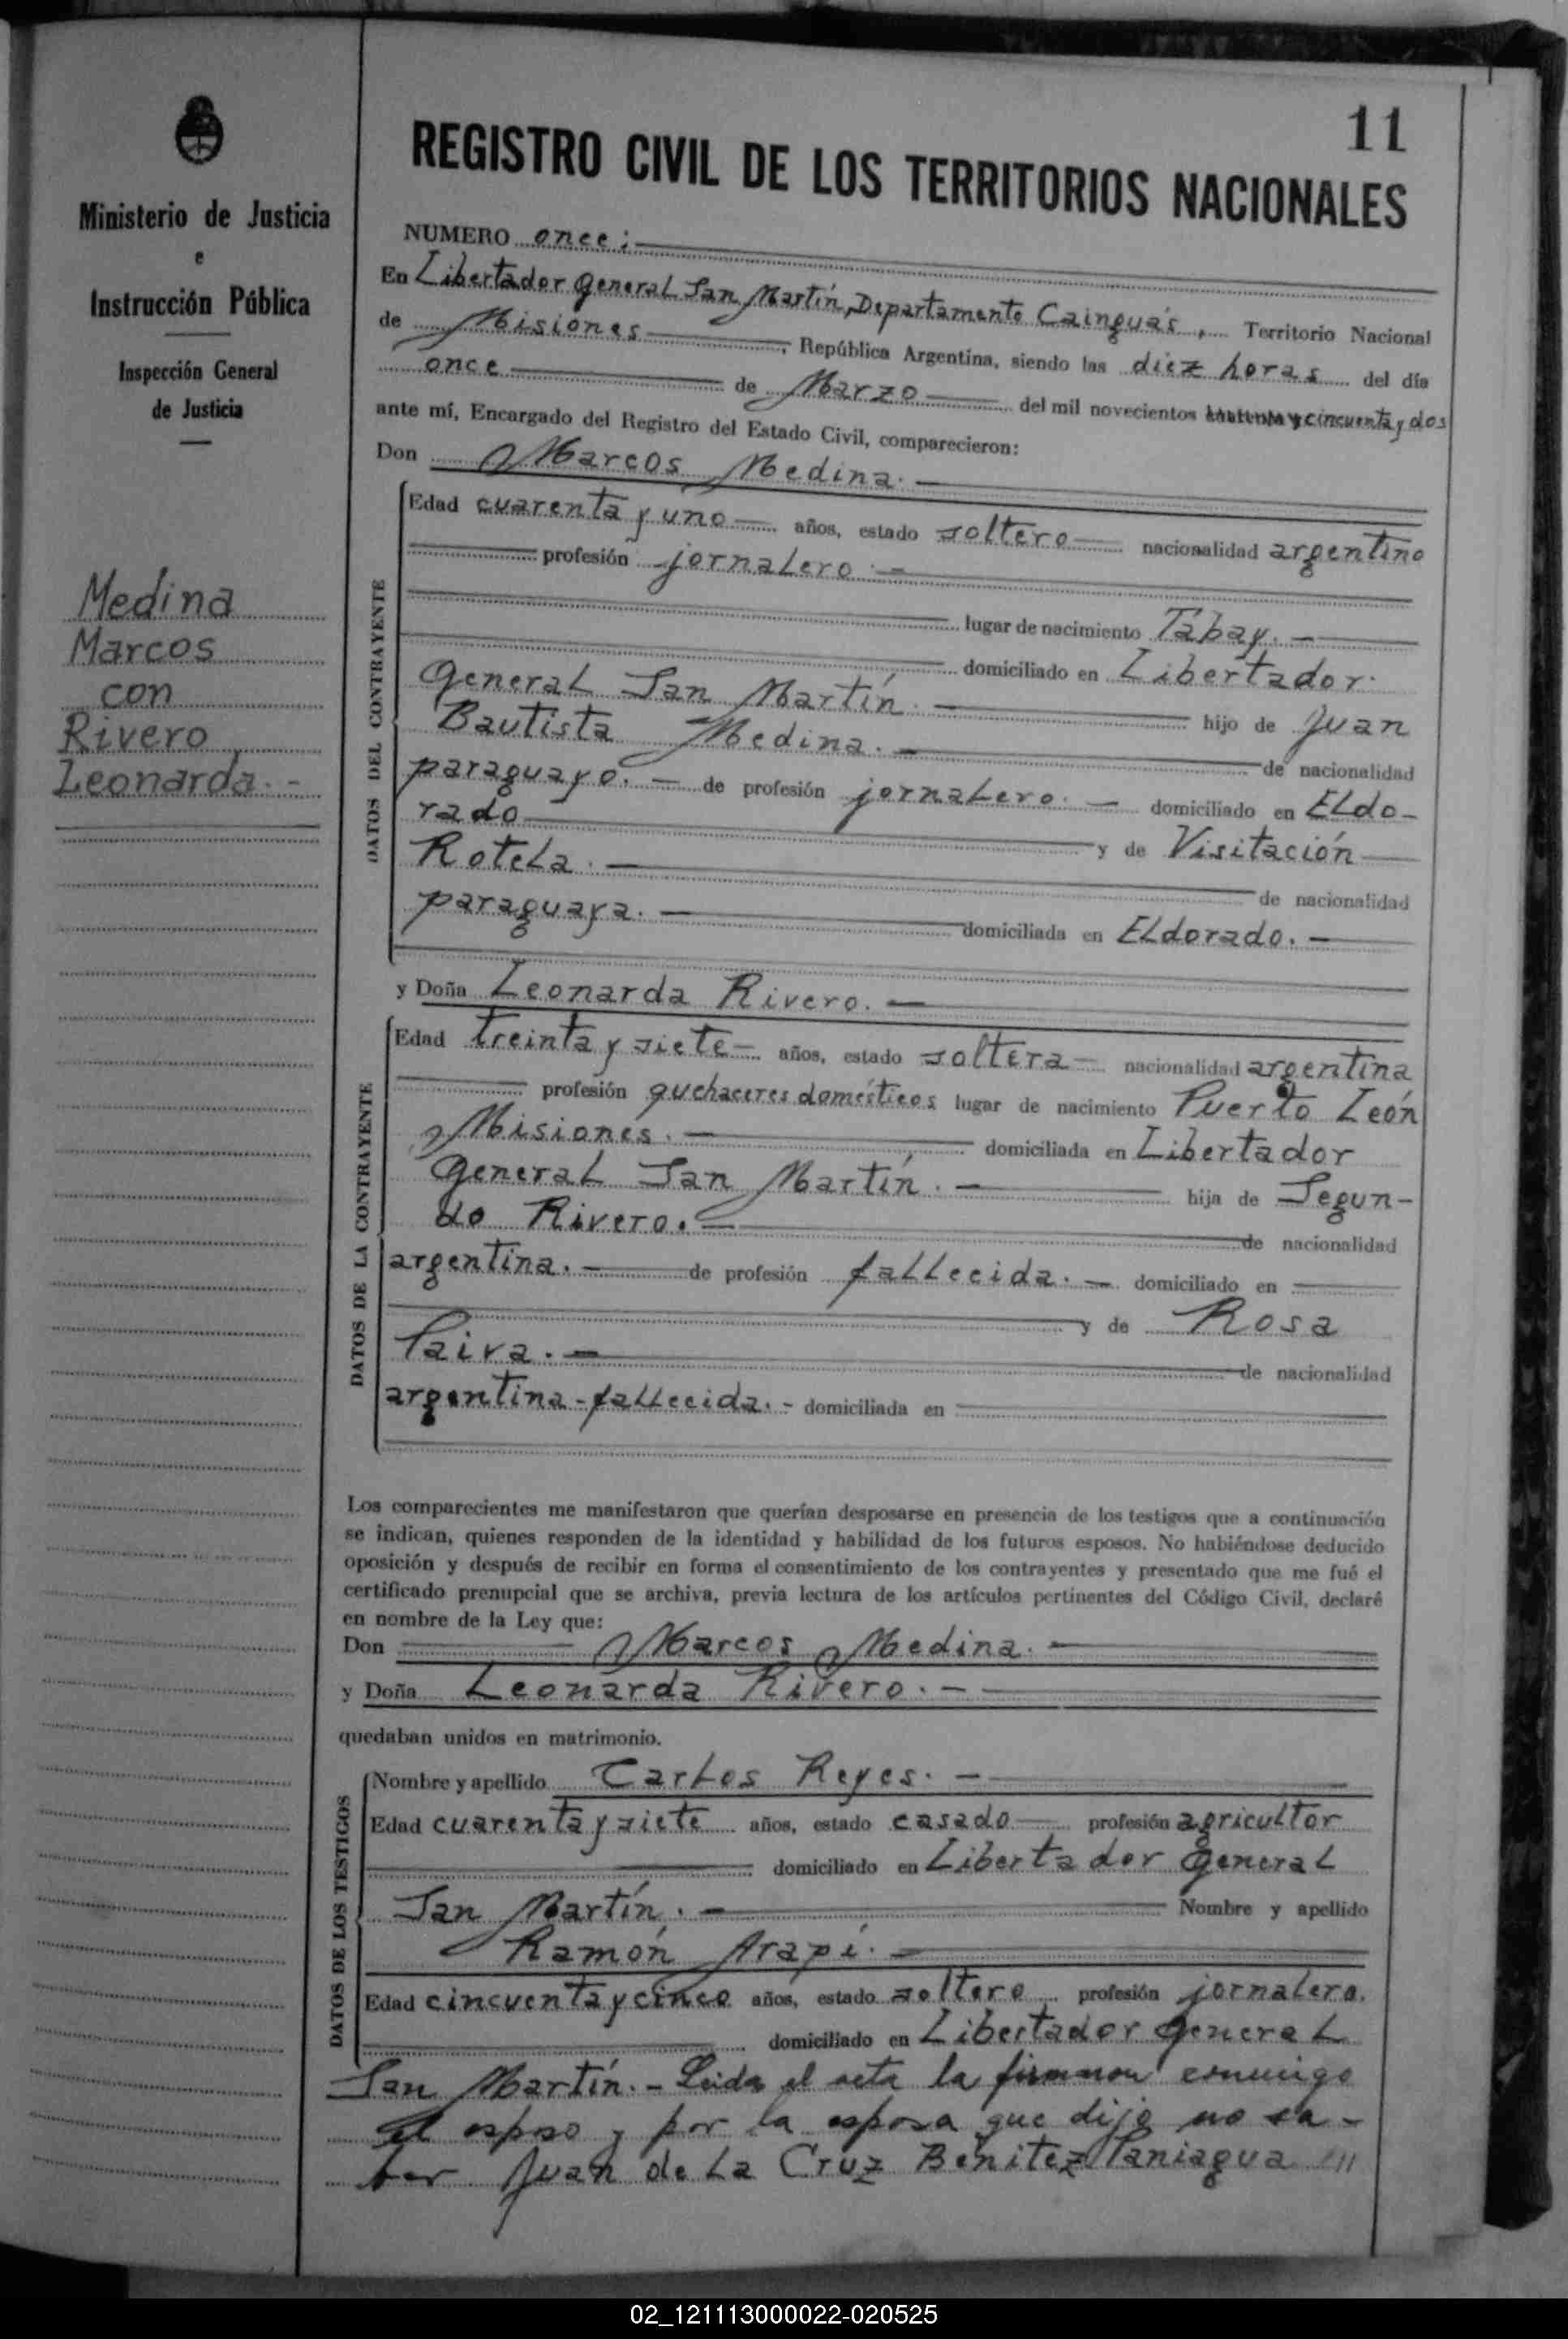 11
REGISTRO CIVIL DE LOS TERRITORIOS NACIONALES
Ministerio de Justicia
e
Instrucción Pública
Inspección General
de Justicia
Medina
Marcos
con
Rivero
Leonarda. -
NUMERO once; 
En Libertador General San Martín, Departamento Cainguás, Territorio Nacional
de Misiones, República Argentina, siendo las diez horas del día
once de Marzo del mil novecientos cincuenta y dos
ante mí, Encargado del Registro del Estado Civil, comparecieron:
Don Marcos Medina. -
DATOS DEL CONTRAYENTE
Edad cuarenta y uno años, estado soltero nacionalidad argentino
profesión jornalero. -
lugar de nacimiento Tabay. -
domiciliado en Libertador
General San Martín. - hijo de Juan
Bautista Medina. - de nacionalidad
paraguayo. - de profesión jornalero. - domiciliado en Eldo-
rado y de Visitación
Rotela. - de nacionalidad
paraguaya. - domiciliada en Eldorado. -
y Doña Leonarda Rivero. -
DATOS DE LA CONTRAYENTE
Edad treinta y siete - años, estado soltera - nacionalidad argentina
profesión quehaceres domésticos lugar de nacimiento Puerto León
Misiones. - domiciliada en Libertador
General San Martín. - hija de Segun-
do Rivero. - de nacionalidad
argentina. - de profesión fallecida. - domiciliado en
y de Rosa
Paiva. - de nacionalidad
argentina - fallecida. - domiciliada en
Los comparecientes me manifestaron que querían desposarse en presencia de los testigos que a continuación
se indican, quienes responden de la identidad y habilidad de los futuros esposos. No habiéndose deducido
oposición y después de recibir en forma el consentimiento de los contrayentes y presentado que me fué el
certificado prenupcial que se archiva, previa lectura de los artículos pertinentes del Código Civil, declaré
en nombre de la Ley que:
Don Marcos Medina. -
y Doña Leonarda Rivero. -
quedaban unidos en matrimonio.
DATOS DE LOS TESTIGOS
Nombre y apellido Carlos Reyes. -
Edad cuarenta y siete años, estado casado profesión agricultor
domiciliado en Libertador General
San Martín. - Nombre y apellido
Ramón Arapí. -
Edad cincuenta y cinco años, estado soltero profesión jornalero.
domiciliado en Libertador General
San Martín. - Leida el acta la firmaron conmigo
el esposo y por la esposa que dijo no sa-
ber Juan de La Cruz Benítez Paniagua ///
02_121113000022-020525